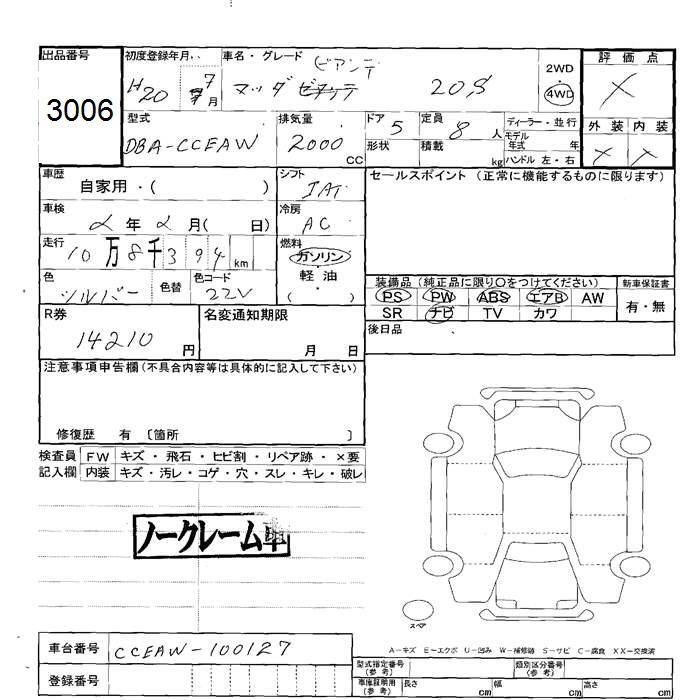 出品番号
3006
初度登録年月
H20 7月
車名・グレード
ビアンテ
マツダ 20S
2WD
4WD
評価点
×
外装 内装
× ×
型式
DBA-CCEAW
排気量
2000 CC
ドア 5
形状
定員 8 人
積載 kg
ディーラー・並行
モデル
年式 年
ハンドル 左・右
車歴
自家用・( )
シフト
IAT
セールスポイント(正常に機能するものに限ります)
車検
2年2月( 日)
冷房
AC
走行
10万8千394km
燃料
ガソリン
・
軽油
( )
色
シルバー
色替
色コード
22V
装備品(純正品に限り○をつけてください)
新車保証書
PS PW ABS エアB AW
SR ナビ TV カワ
有・無
後日品
R券
14210円
名変通知期限
月 日
注意事項申告欄(不具合内容等は具体的に記入して下さい)
修復歴 有 〔箇所 〕
検査員 FW キズ・飛石・ヒビ割・リペア跡・×要
記入欄 内装 キズ・汚レ・コゲ・穴・スレ・キレ・破レ
ノークレーム車
スペア
A-キズ E-エクボ U-凹み W-補修跡 S-サビ C-腐食 XX-交換済
車台番号
CCEAW-100127
登録番号
型式指定番号
(参考)
類別区分番号
(参考)
車庫証明用
(参考)
長さ cm 幅 cm 高さ cm